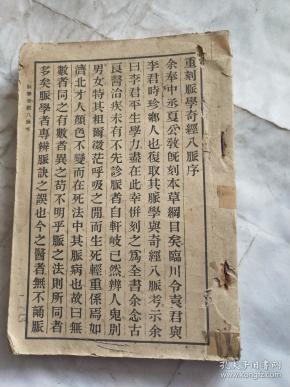 重刻脈學奇經八脈序
余奉中丞夏公敎旣刻本草綱目矣臨川令袁君與
李君時珍鄉人也復取其脈學與奇經八脈考示余
曰李君平生學力盡在此幸併刻之爲全書余念古
良醫治疾未有不先診脈者自軒岐已然辨人鬼別
男女特其粗爾微茫呼吸之閒而生死輕重係焉如
濟北才人顏色不變而在死法中其脈病也故曰無
數者同之有數者異之苟不明乎脈之法則所同者
多矣脈學者專辨脈訣之誤也今之醫者無不誦脈
孔夫子旧书网